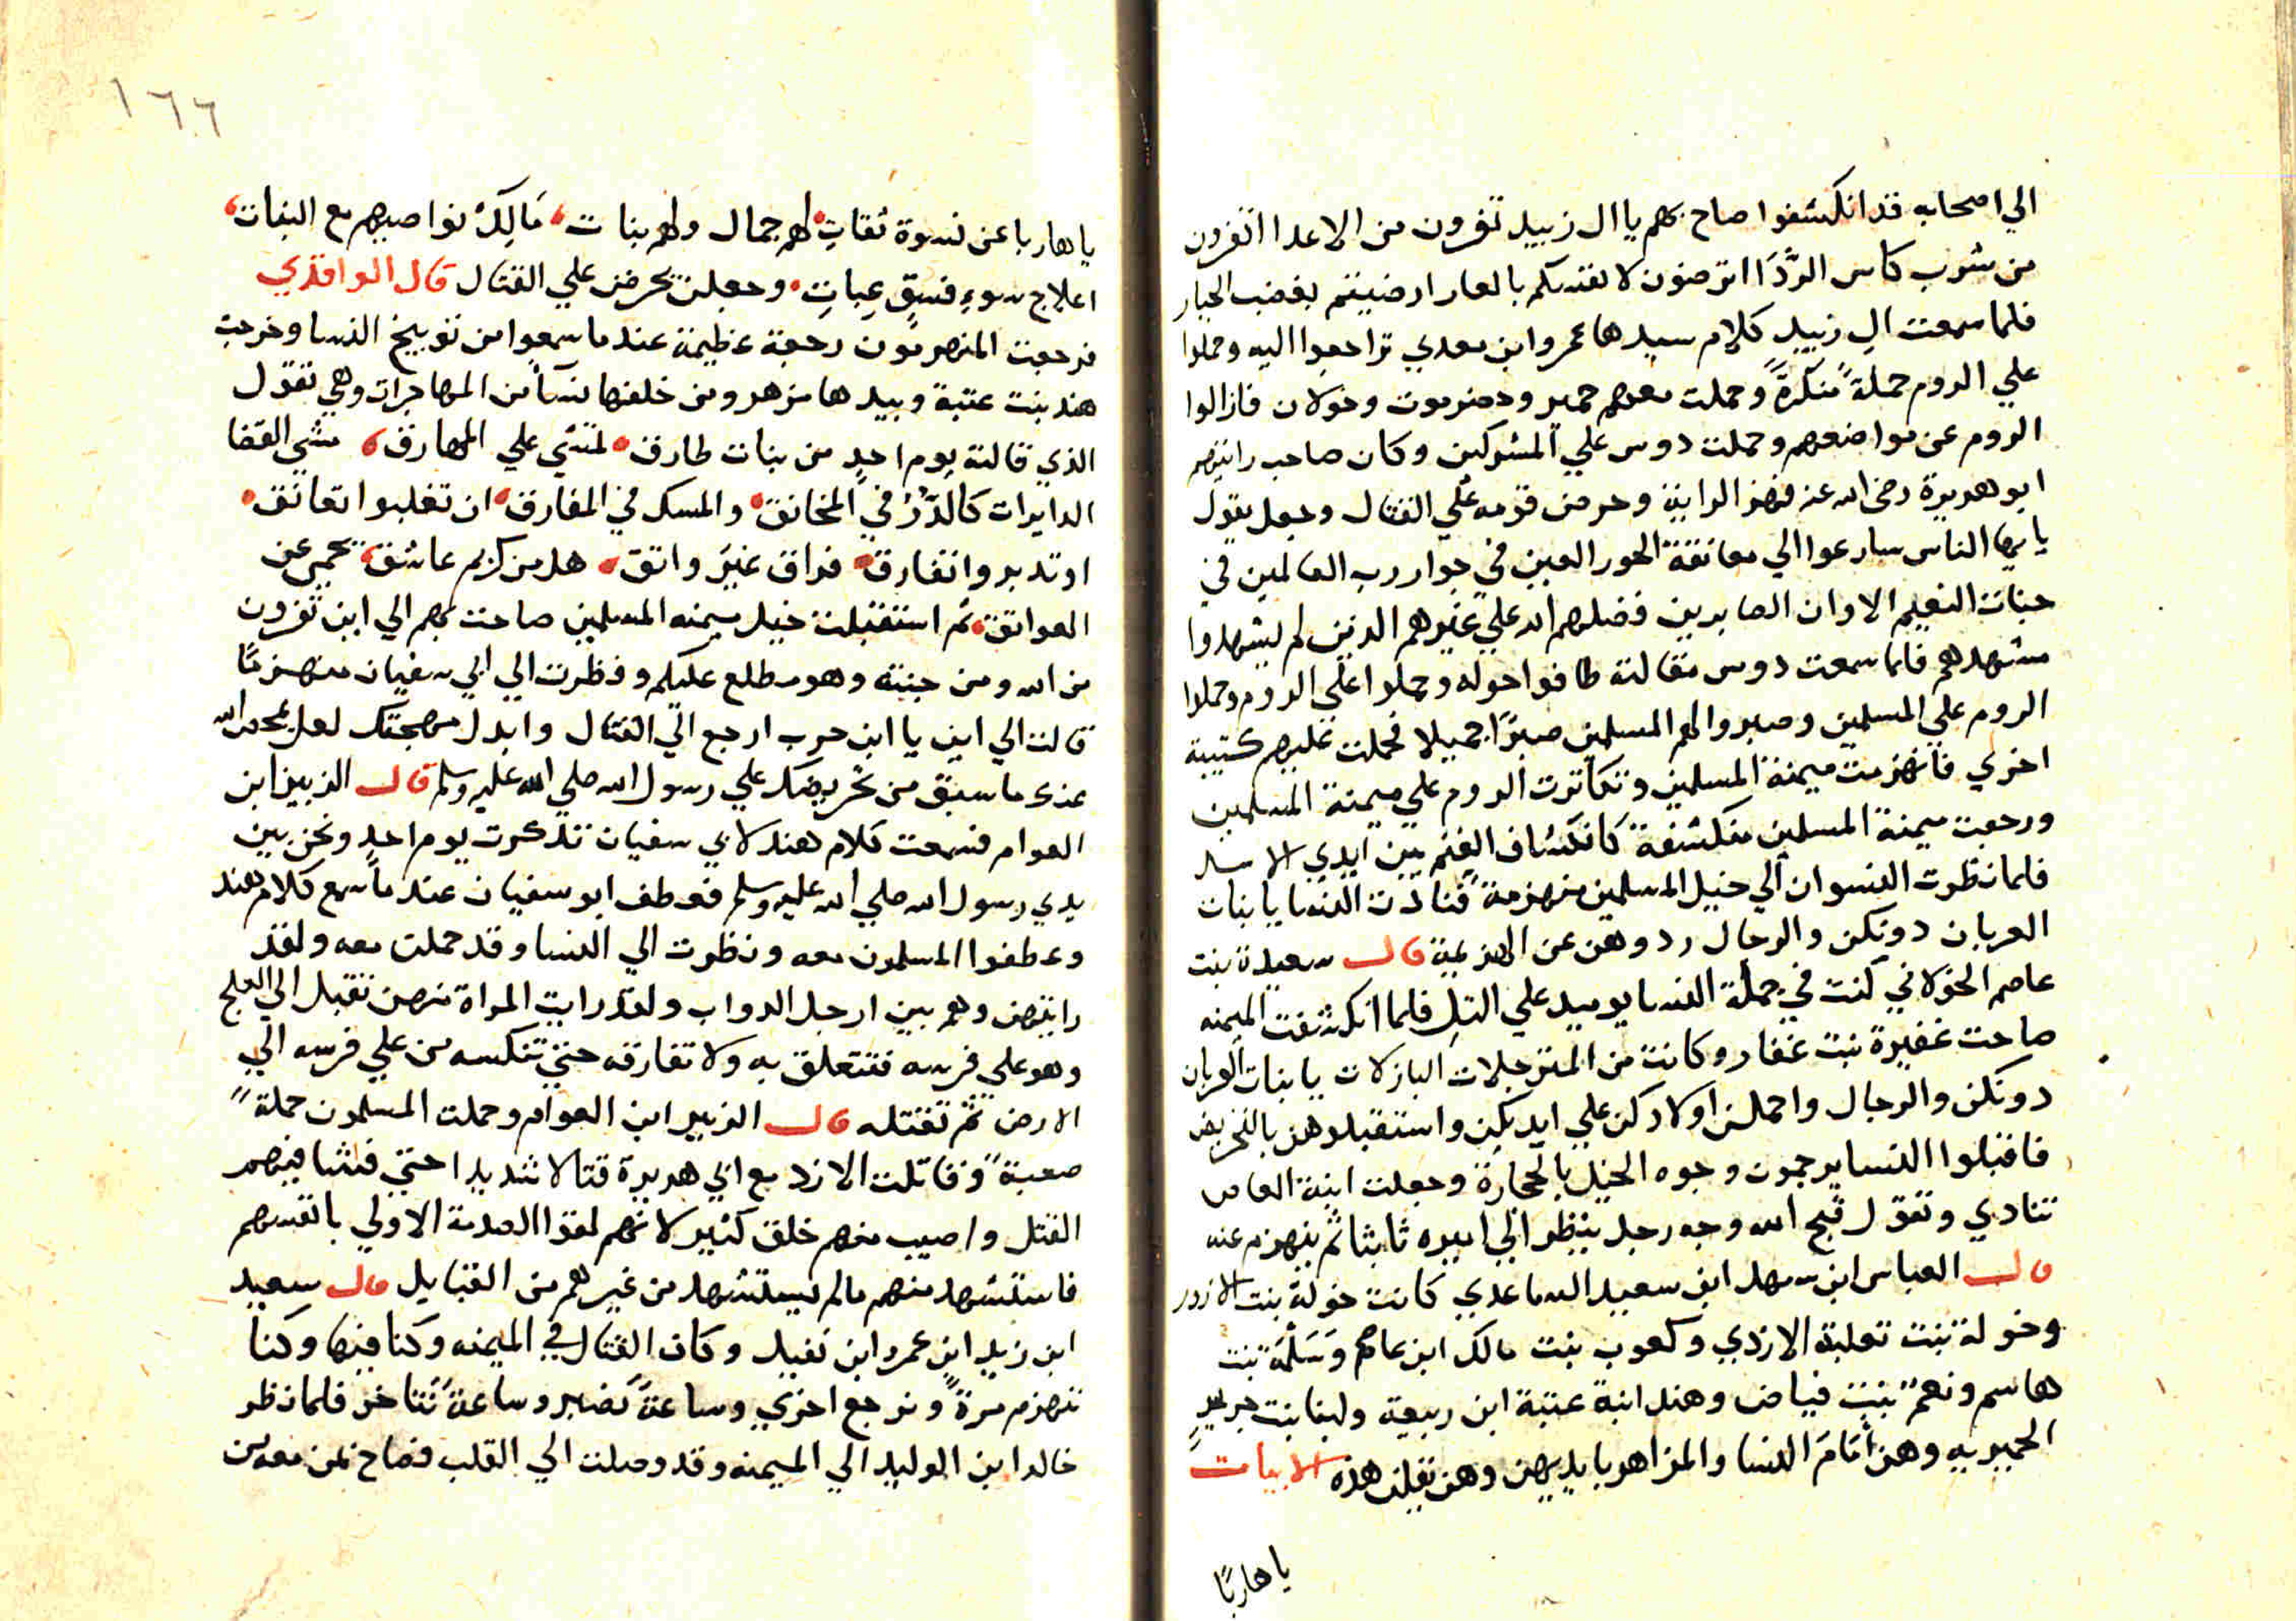 الي اصحابه قد انكشفوا صاح بهم يا ال زبيد تفرون من الاعدا اتفرون
من شرب كاس الردَا اترضون لانفسكم بالعار ارضيتم بغضب الجبار
فلما سمعت ال زبيد كلام سيدها عمرو ابن معدي تراجعوا اليه وحملوا
علي الروم حملةً منكرةً وحملت معهم حمير وحضرموت وخولان فازالوا
الروم عن مواضعهم وحملت دوس علي المشركين وكان صاحب رايتهم
ابو هريرة رضي الله عنه فهز الراية وحرض قومه علي القتال وجعل يقول
يا ايها الناس سارعوا الي معانقة الحور العين في جوار رب العالمين في
جنات النعيم الا وان الصابرين فضلهم الله علي غيرهم الذين لم يشهدوا
مشهدهم فلما سمعت دوس مقالته طافوا حوله وحملوا علي الروم وحملوا
الروم علي المسلمين وصبروا لهم المسلمين صبرًا جميلا فحملت عليهم كتيبة
اخري فانهزمت ميمنة المسلمين وتكاثرت الروم علي ميمنة المسلمين
ورجعت ميمنة المسلمين منكشفة كانكشاف الغنم بين ايدي الاسد
فلما نظرت النسوان الي خيل المسلمين منهزمة فنادت النسا يا بنات
العربان دونكن والرجال ردوهن عن الهزيمة قال سعيدة بنت
عاصم الخولاني كنت في جملة النسا يوميد علي التل فلما انكشفت الميمنه
صاحت عفيرة بنت غفار وكانت من المترجلات البازلات يا بنات العربان
دونكن والرجال واحملن اولادكن علي ايديكن واستقبلوهن بالتحريض
فاقبلوا النسا يرجمون وجوه الخيل بالحجارة وجعلت ابنة العاص
تنادي وتقول قبح الله وجه رجل ينظر الي اسيره ثابثا ثم ينهزم عنه
قال العباس ابن سهل ابن سعيد الساعدي كانت خولة بنت الازور
وخولة بنت ثعلبة الازدي وكعوب بنت مالك ابن عاصم وسَلمَة بنت
هاسم ونعم بنت فياض وهند ابنة عتبة ابن ربيعة ولبنا بنت جرير
الحميريه وهن أمَامَ النسا والمزاهر بايديهن وهن يقلن هذه الابيات
يا هاربًا
١٦٦
يا هاربا عن نسوة ثقاتِ لهم جمال ولهم بنات مَالِكُ نواصيهم مع البنات
اعلاج سوءِ فسقٍ عِباتِ وجعلن يحرضن علي القتال قال الواقدي
فرجعت المنهزمون رجعة عظيمة عند ما سمعوا من توبيخ النسا وخرجت
هند بنت عتبة وبيدها مزهر ومن خلفها نسآ من المهاجرات وهي تقول
الذي قالته يوم احدٍ من بنات طارق نمشي علي المهارق مشي القضا
الدايرات كالدُرُ في المخانق والمسك في المفارق ان تغلبوا تعانق
او تدبروا نفارق فراق غير واتق هل من كريم عاشق يحمي عن
العواتق ثم استقبلت خيل ميمنه المسلمين صاحت بهم الي اين تفرون
من الله ومن جنته وهو مطلع عليكم ونظرت الي ابي سفيان منهزمًا
قالت الي اين يا ابن حرب ارجع الي القتال وابدل مهجتك لعل يمحص الله
عنك ما سبق من تحريضك علي رسول الله صلي الله عليه وسلم قال الزبير ابن
العوام فسمعت كلام هند لابي سفيان تذكرت يوم احدٍ ونحن بين
يدي رسول الله صلي الله عليه وسلم فعطف ابو سفيان عند ما سمع كلام هند
وعطفوا المسلمون معه ونظرت الي النسا وقد حملت معه ولقد
رايتهن وهم بين ارجل الدواب ولقد رايت المراة منهن تقبل الي العلج
وهو علي فرسه فتتعلق به ولا تفارقه حتي تنكسه من علي فرسه الي
الارض ثم تقتله قال الزبير ابن العوام وحملت المسلمون حملة
صعبة وقاتلت الازد مع ابي هريرة قتالا شديدا حتي فشا فيهم
القتل واصيب منهم خلق كثير لانهم لقوا الصدمة الاولي بانفسهم
فاستشهد منهم مالم يستشهد من غيرهم من القبايل قال سعيد
ابن زيد ابن عمرو ابن نفيل وكان القتال في الميمنه وكنا فيها وكنا
ننهزم مرةً ونرجع اخري وساعة نصبر وساعة نتاخر فلما نظر
خالد ابن الوليد الي الميمنه وقد وصلت الي القلب فصاح بمن معه من